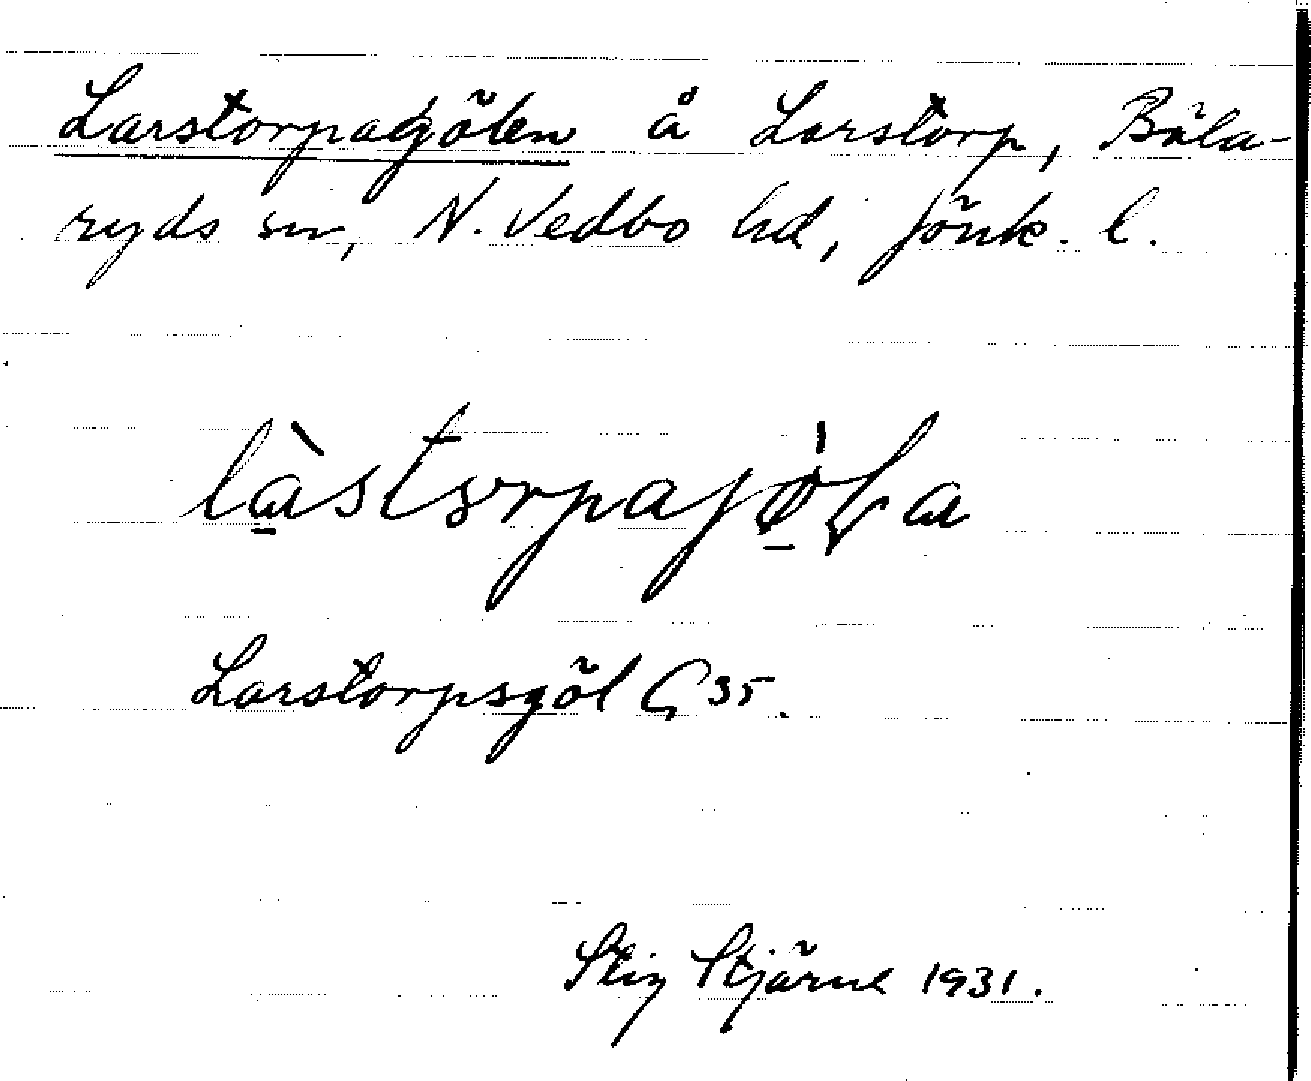 Larstorpagölen å Larstorp, Bäla-
ryds sn, N. Vedbo hd, Jönk. l.
là̱stɔrpajø̱̍ɽa
Larstorpsgöl G 35.
Stig Stjärne 1931.